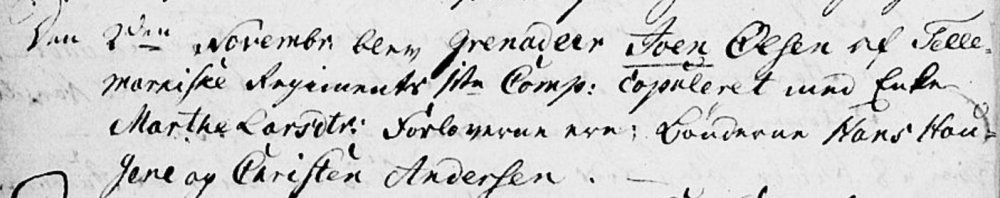 Den 2den Novembr. blev Grenadeer Joen Olsen af Telle-
markiske Regiments 1ste Comp: Copuleret med Enke
Marthe Larsdtr: Forloverne ere; Bønderne Hans Hau-
gene og Christen Andersen.